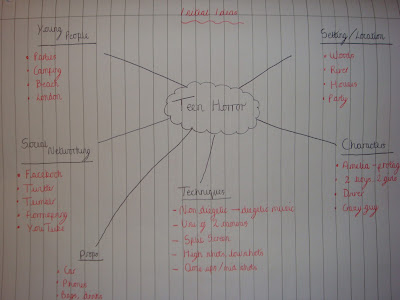 Initial Ideas
Young People
Parties
Camping
Beach
London
Setting/Location
Woods
River
Houses
Party
Teen Horror
Social Networking
Facebook
Twitter
Tumblr
Formspring
YouTube
Techniques
- Non diegetic → diegetic music
- Use of 2 cameras
- Split Screen
- High shots, low shots
- Close ups/mid shots
Character
Amelia - protag
2 boys, 2 girls
Crazy guy
Props
Car
Phones